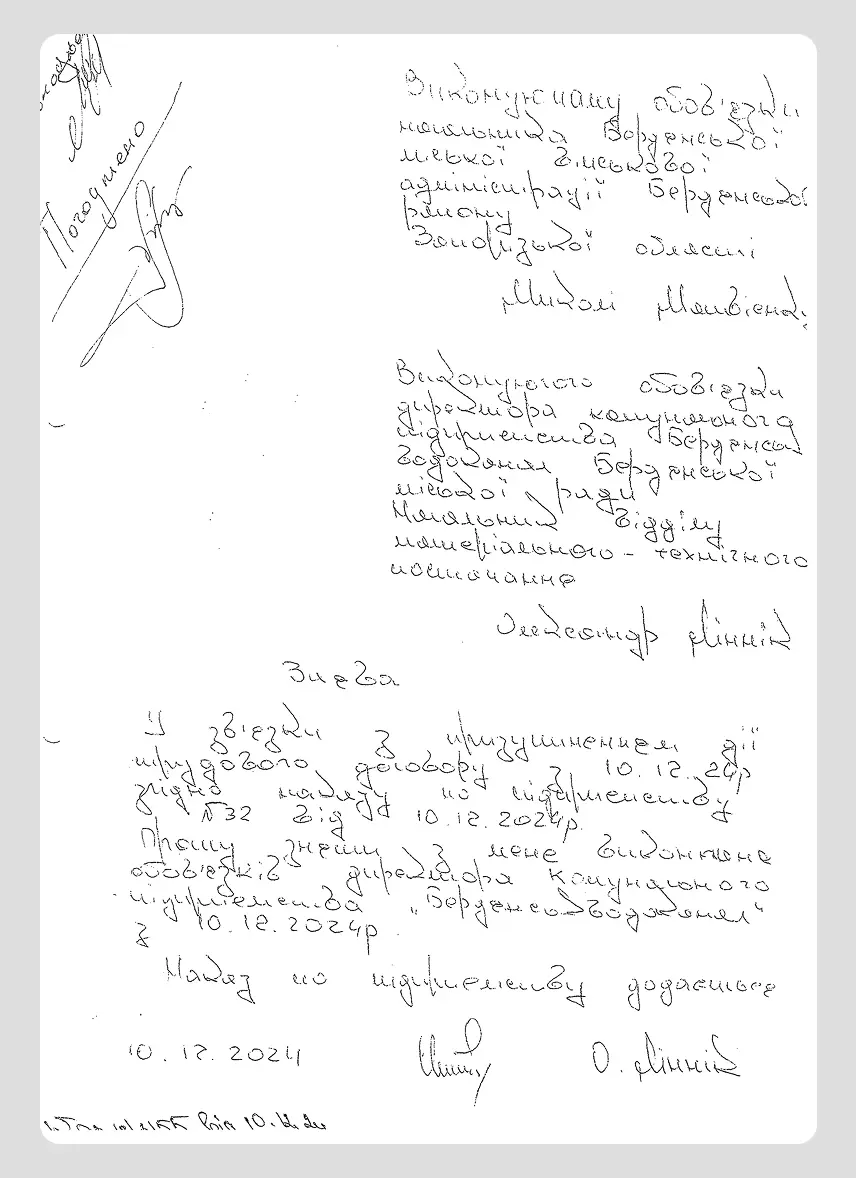 Погоджено
Виконуючому обов'язки
начальника Бердянської
міської військової
адміністрації Бердянської
району
Запорізької області
Миколі Матвієнку
Виконуючого обов'язки
директора комунального
підприємства Бердянськ
водоканал Бердянської
міської ради
Начальник відділу
матеріального - технічного
постачання
Олександр Лінник
Заява
У зв'язки з призупиненням дії
трудового договору з 10.12.24р
згідно наказу по підприємству
№32 від 10.12.2024р.
Прошу зняти з мене виконання
обов'язків директора комунального
підприємства "Бердянськводоканал"
з 10.12.2024р.
Наказ по підприємству додається
10.12.2024 О. Лінник
від 10.12.24